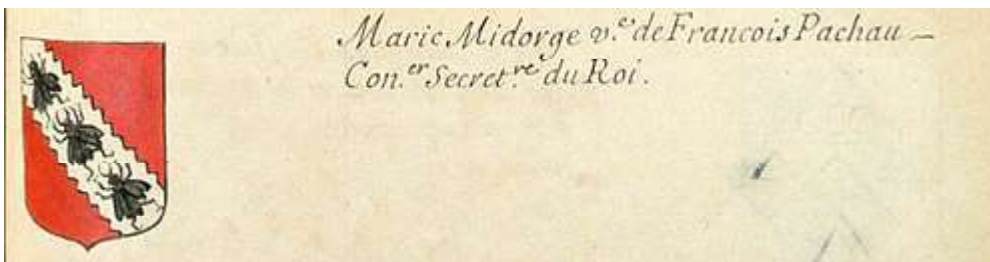 Marie Midorge v.e de Francois Pachau –
Con.er Secret.re du Roi.